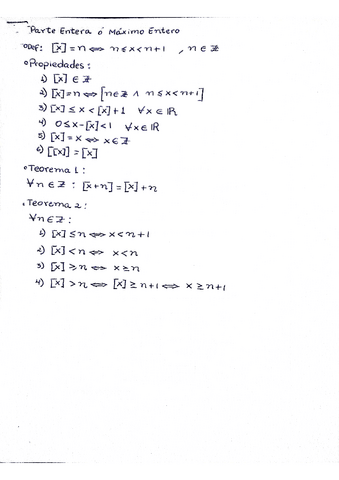 Parte Entera ó Máximo Entero
Def: [x] = n ⟺ n ≤ x < n+1 , n ∈ Z
Propiedades:
1) [x] ∈ Z
2) [x] = n ⟺ [n ∈ Z ∧ n ≤ x < n+1]
3) [x] ≤ x < [x] + 1 ∀x ∈ R
4) 0 ≤ x - [x] < 1 ∀x ∈ R
5) [x] = x ⟺ x ∈ Z
6) [[x]] = [x]
Teorema 1:
∀n ∈ Z : [x+n] = [x] + n
Teorema 2:
∀n ∈ Z :
1) [x] ≤ n ⟺ x < n+1
2) [x] < n ⟺ x < n
3) [x] ≥ n ⟺ x ≥ n
4) [x] > n ⟺ [x] ≥ n+1 ⟺ x ≥ n+1